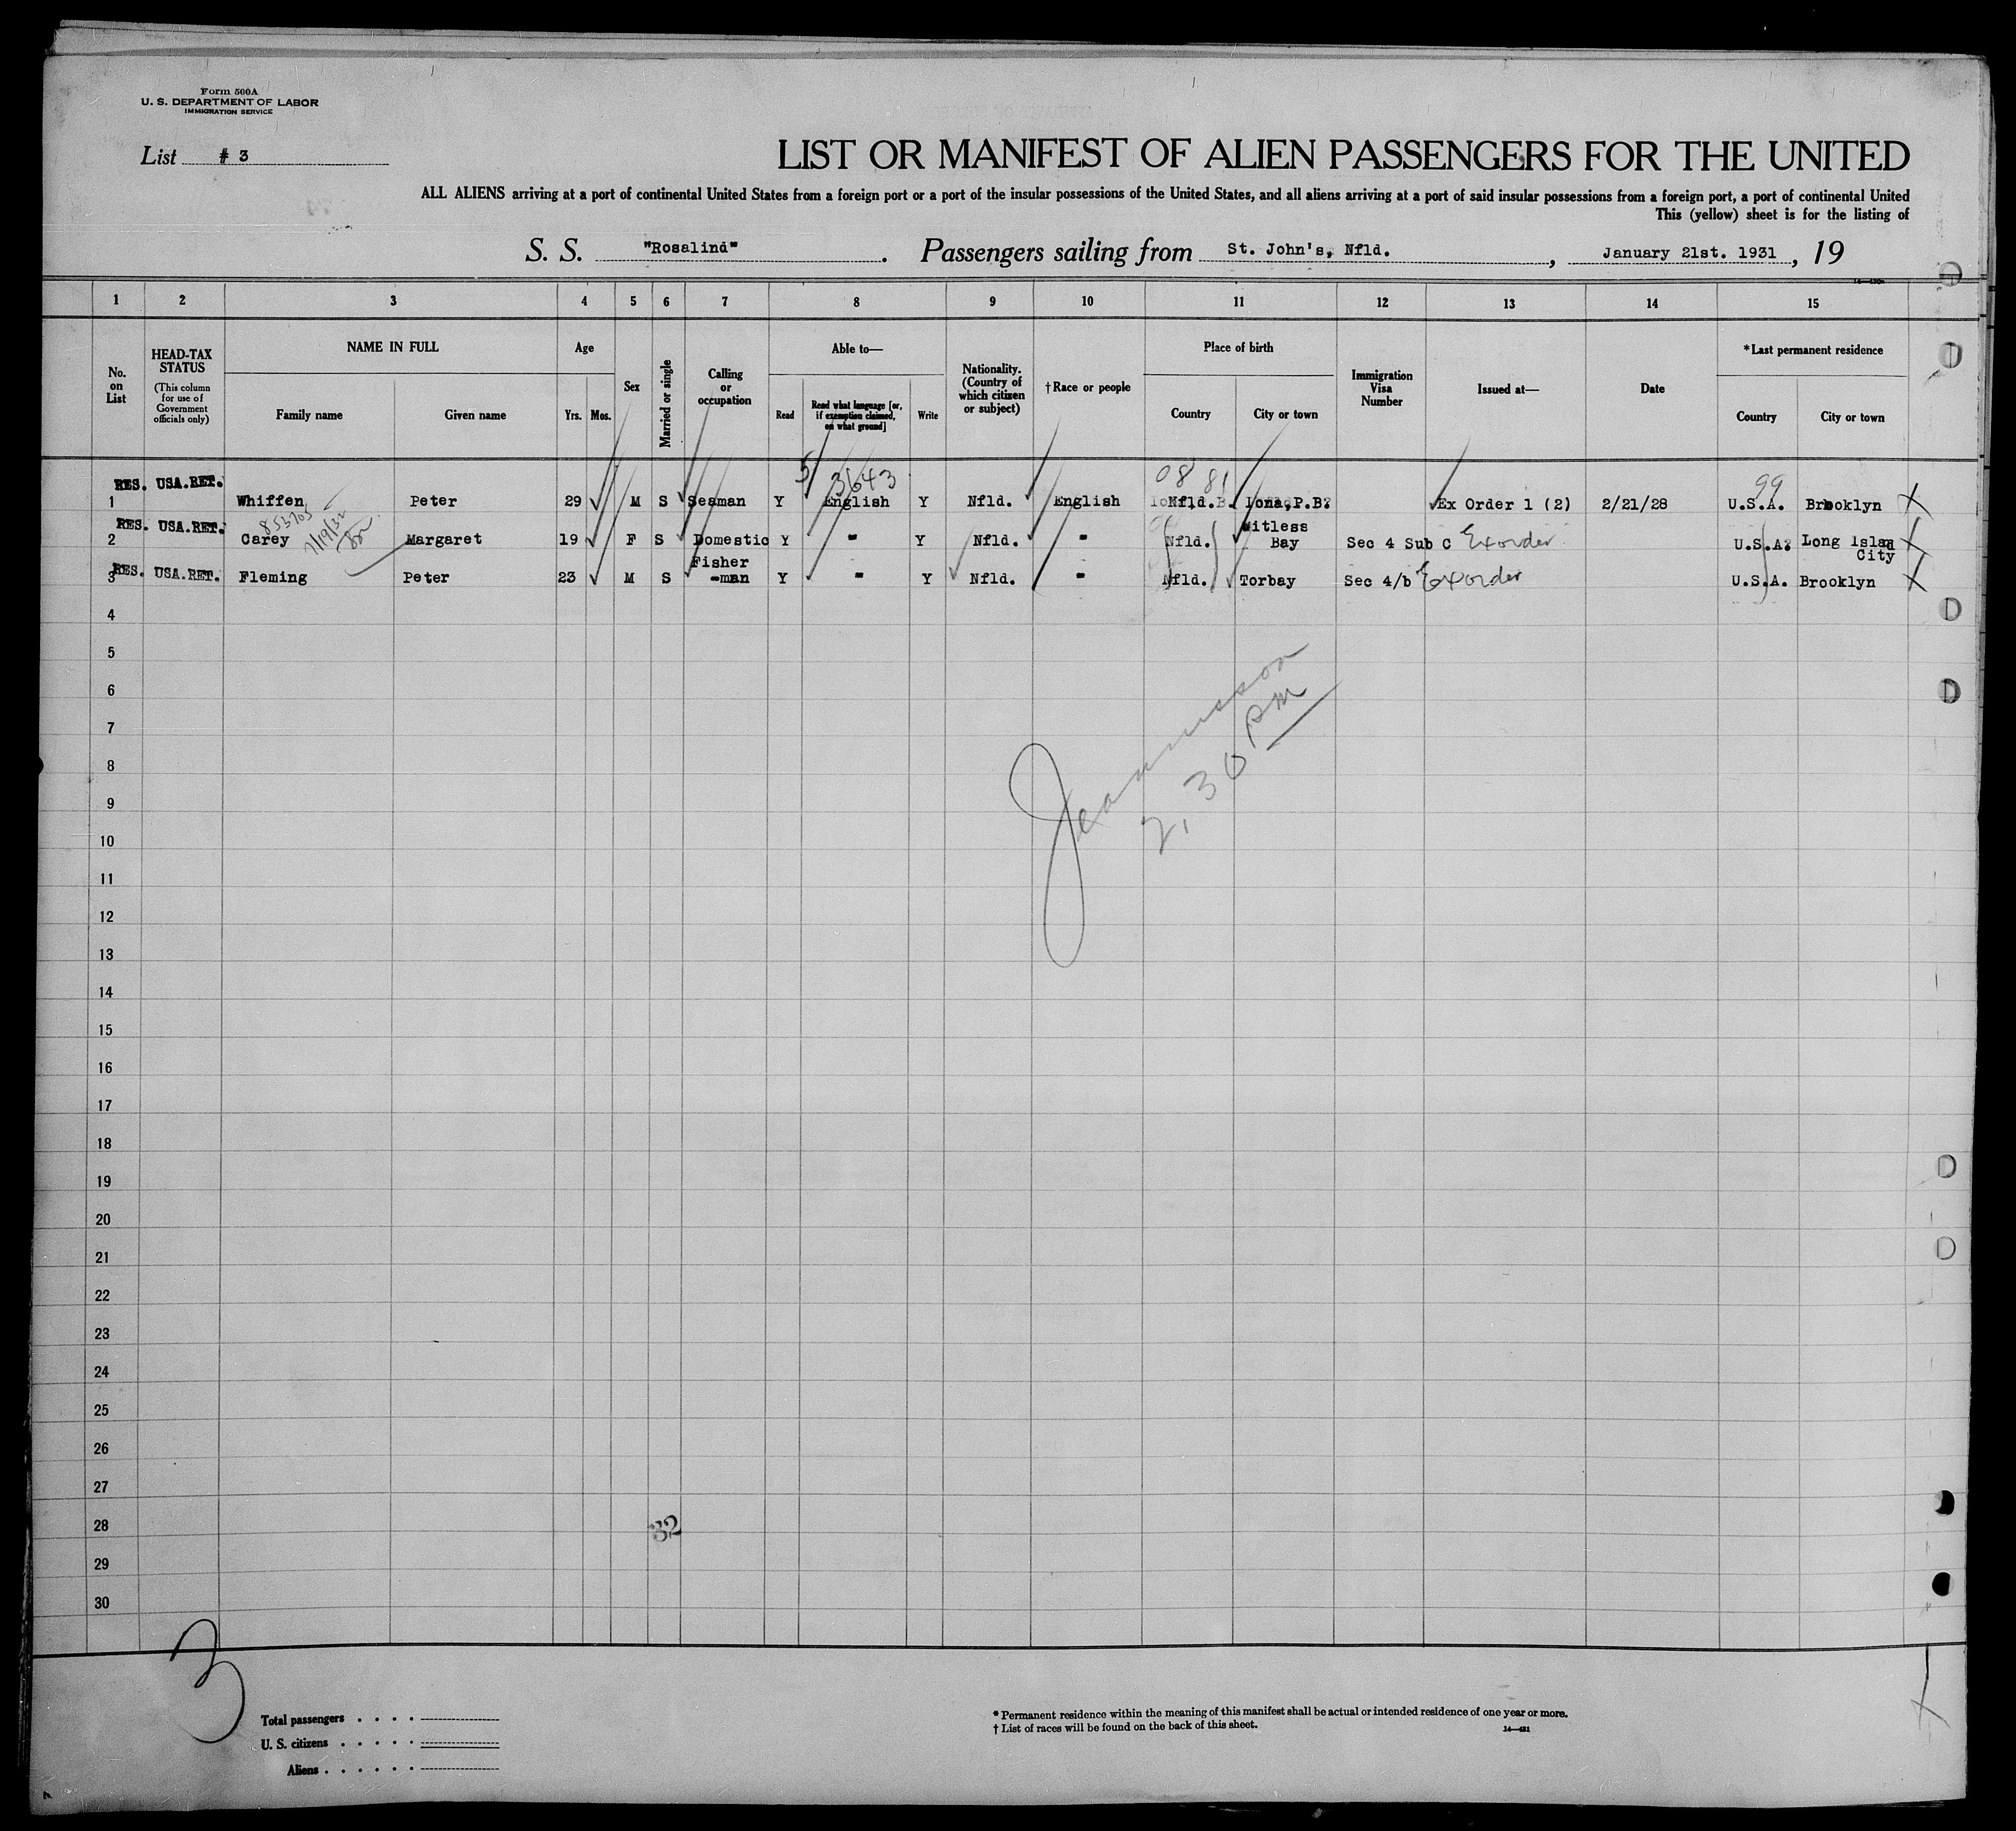 Form 500A
U. S. DEPARTMENT OF LABOR
IMMIGRATION SERVICE
List # 3
LIST OR MANIFEST OF ALIEN PASSENGERS FOR THE UNITED
ALL ALIENS arriving at a port of continental United States from a foreign port or a port of the insular possessions of the United States, and all aliens arriving at a port of said insular possessions from a foreign port, a port of continental United
This (yellow) sheet is for the listing of
S. S. "Rosalind" . Passengers sailing from St. John's, Nfld. , January 21st. 1931 , 19
1 2 3 4 5 6 7 8 9 10 11 12 13 14 15
No. on List
HEAD-TAX STATUS
(This column for use of Government officials only)
NAME IN FULL
Family name
Given name
Age
Yrs. Mos.
Sex
Married or single
Calling or occupation
Able to—
Read
Read what language [or, if exemption claimed, on what ground]
Write
Nationality. (Country of which citizen or subject)
† Race or people
Place of birth
Country
City or town
Immigration Visa Number
Issued at—
Date
* Last permanent residence
Country
City or town
5 3643 08 81 99
RES. USA.RET.
1 Whiffen Peter 29 M S Seaman Y English Y Nfld. English Nfld. Iona, P.B. Ex Order 1 (2) 2/21/28 U.S.A. Brooklyn
853705
7/19/32
RES. USA.RET. Witless
2 Carey Margaret 19 F S Domestic Y " Y Nfld. " Nfld. Bay Sec 4 Sub C Ex order U.S.A. Long Islan
City
RES. USA.RET. Fisher
3 Fleming Peter 23 M S -man Y " Y Nfld. " Nfld. Torbay Sec 4/b Ex order U.S.A. Brooklyn
4
5
6
7
8
9
10
11
12
13
14
15
16
17
18
19
20
21
22
23
24
25
26
27
28
29
30
2,30 pm
32
3
Total passengers . . . .
U. S. citizens . . . . .
Aliens . . . . . .
* Permanent residence within the meaning of this manifest shall be actual or intended residence of one year or more.
† List of races will be found on the back of this sheet.